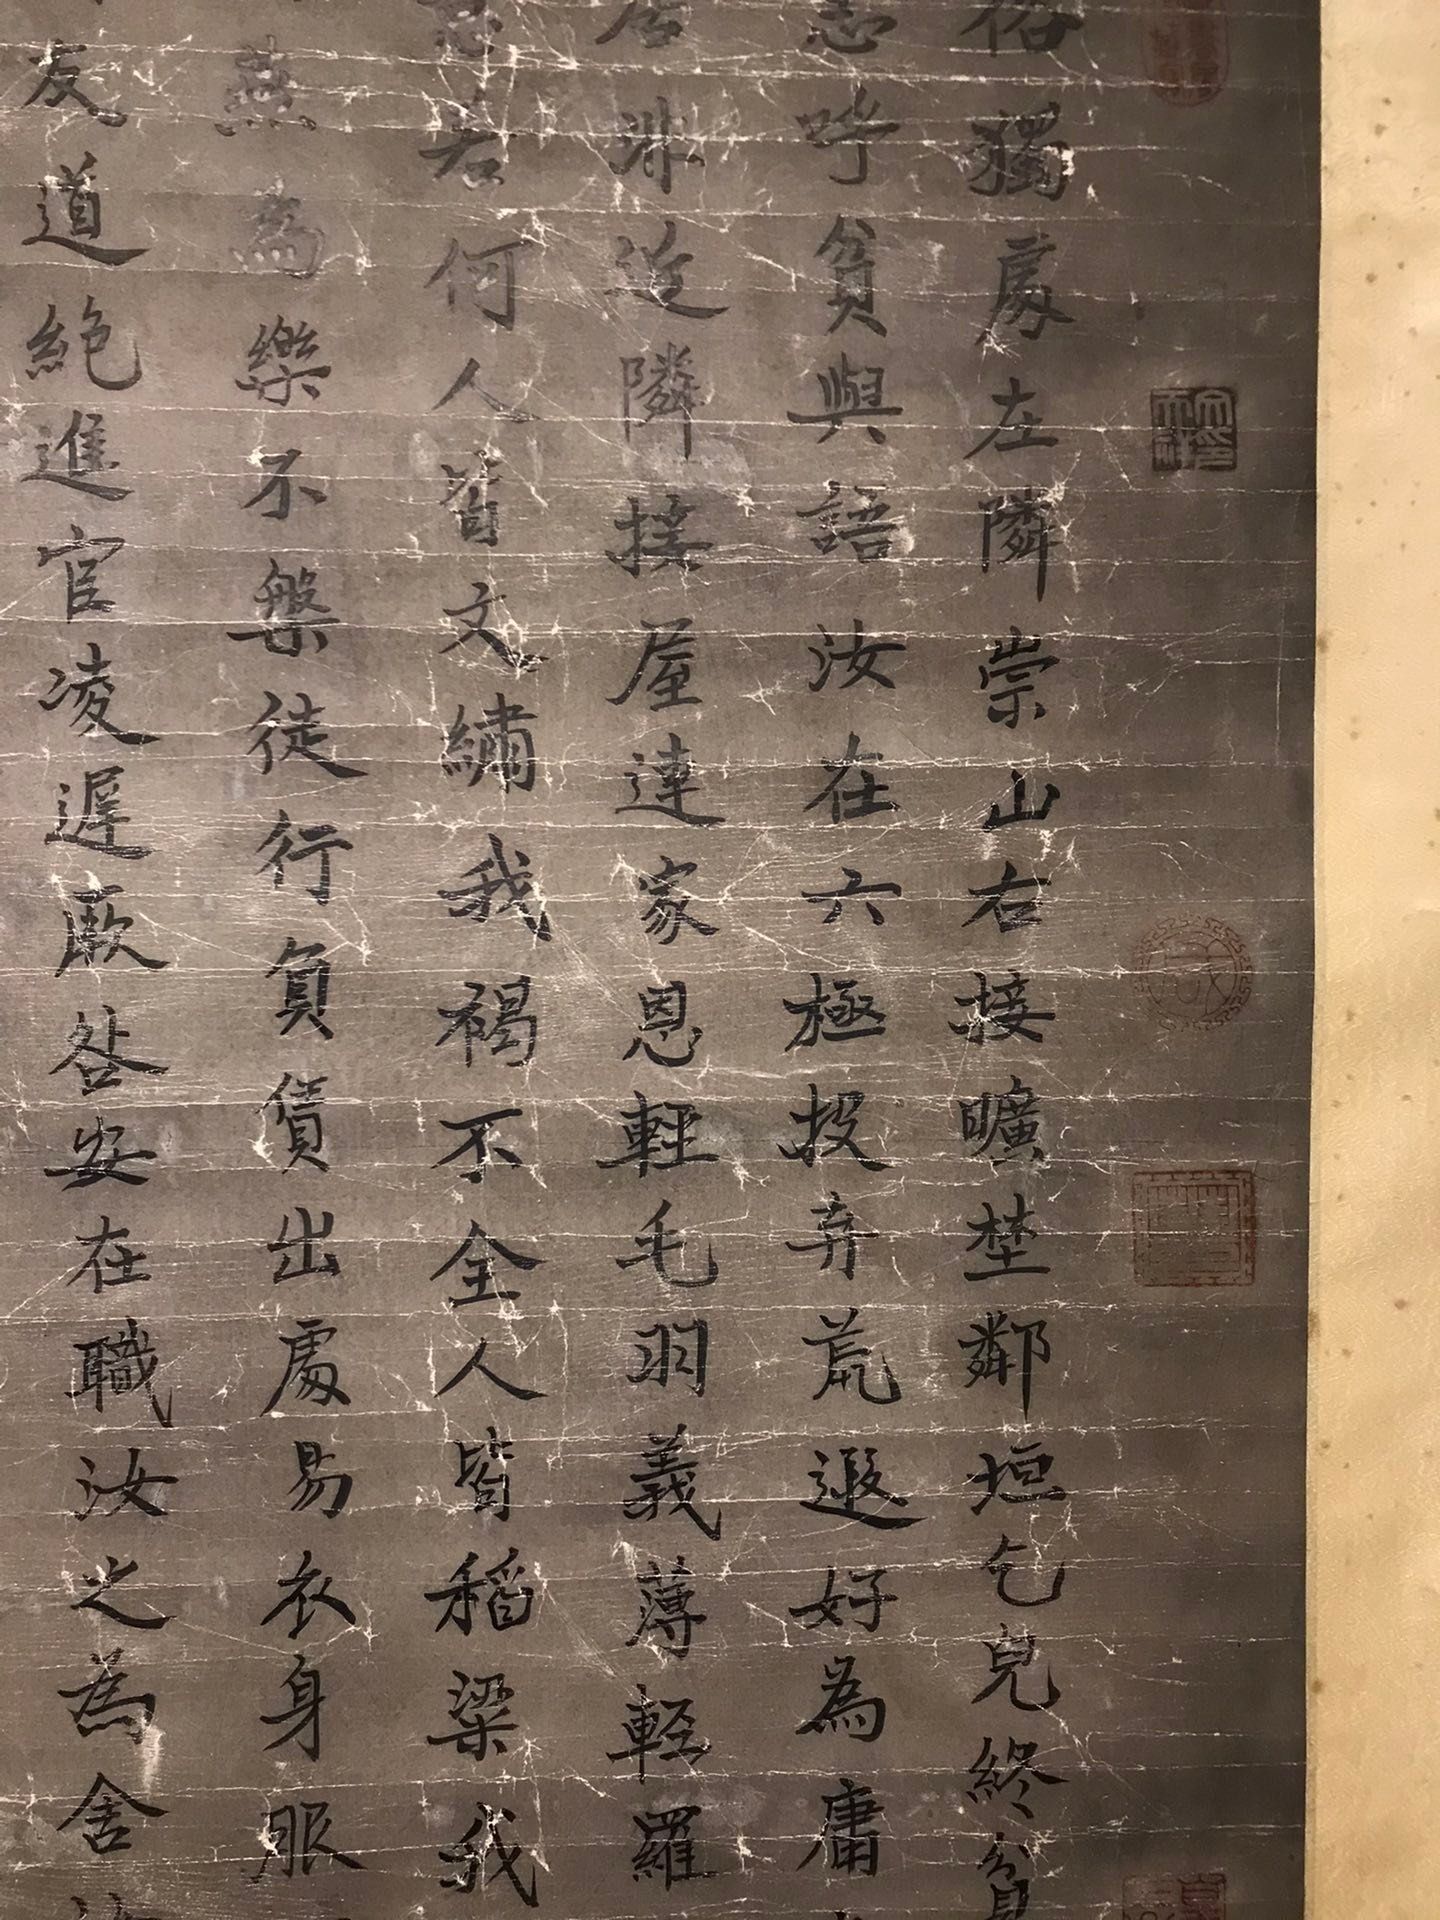 俗獨處左隣崇山右接曠埜鄰垣乞兒終貧
志呼貧與語汝在六極投弃荒遐好為庸
居非近隣接屋連家恩輕毛羽義薄輕羅
忽若何人皆文繡我褐不全人皆稻粱我
燕為樂不槃徒行負債出處易衣身服
友道絕進官凌遲厥咎安在職汝之為舍